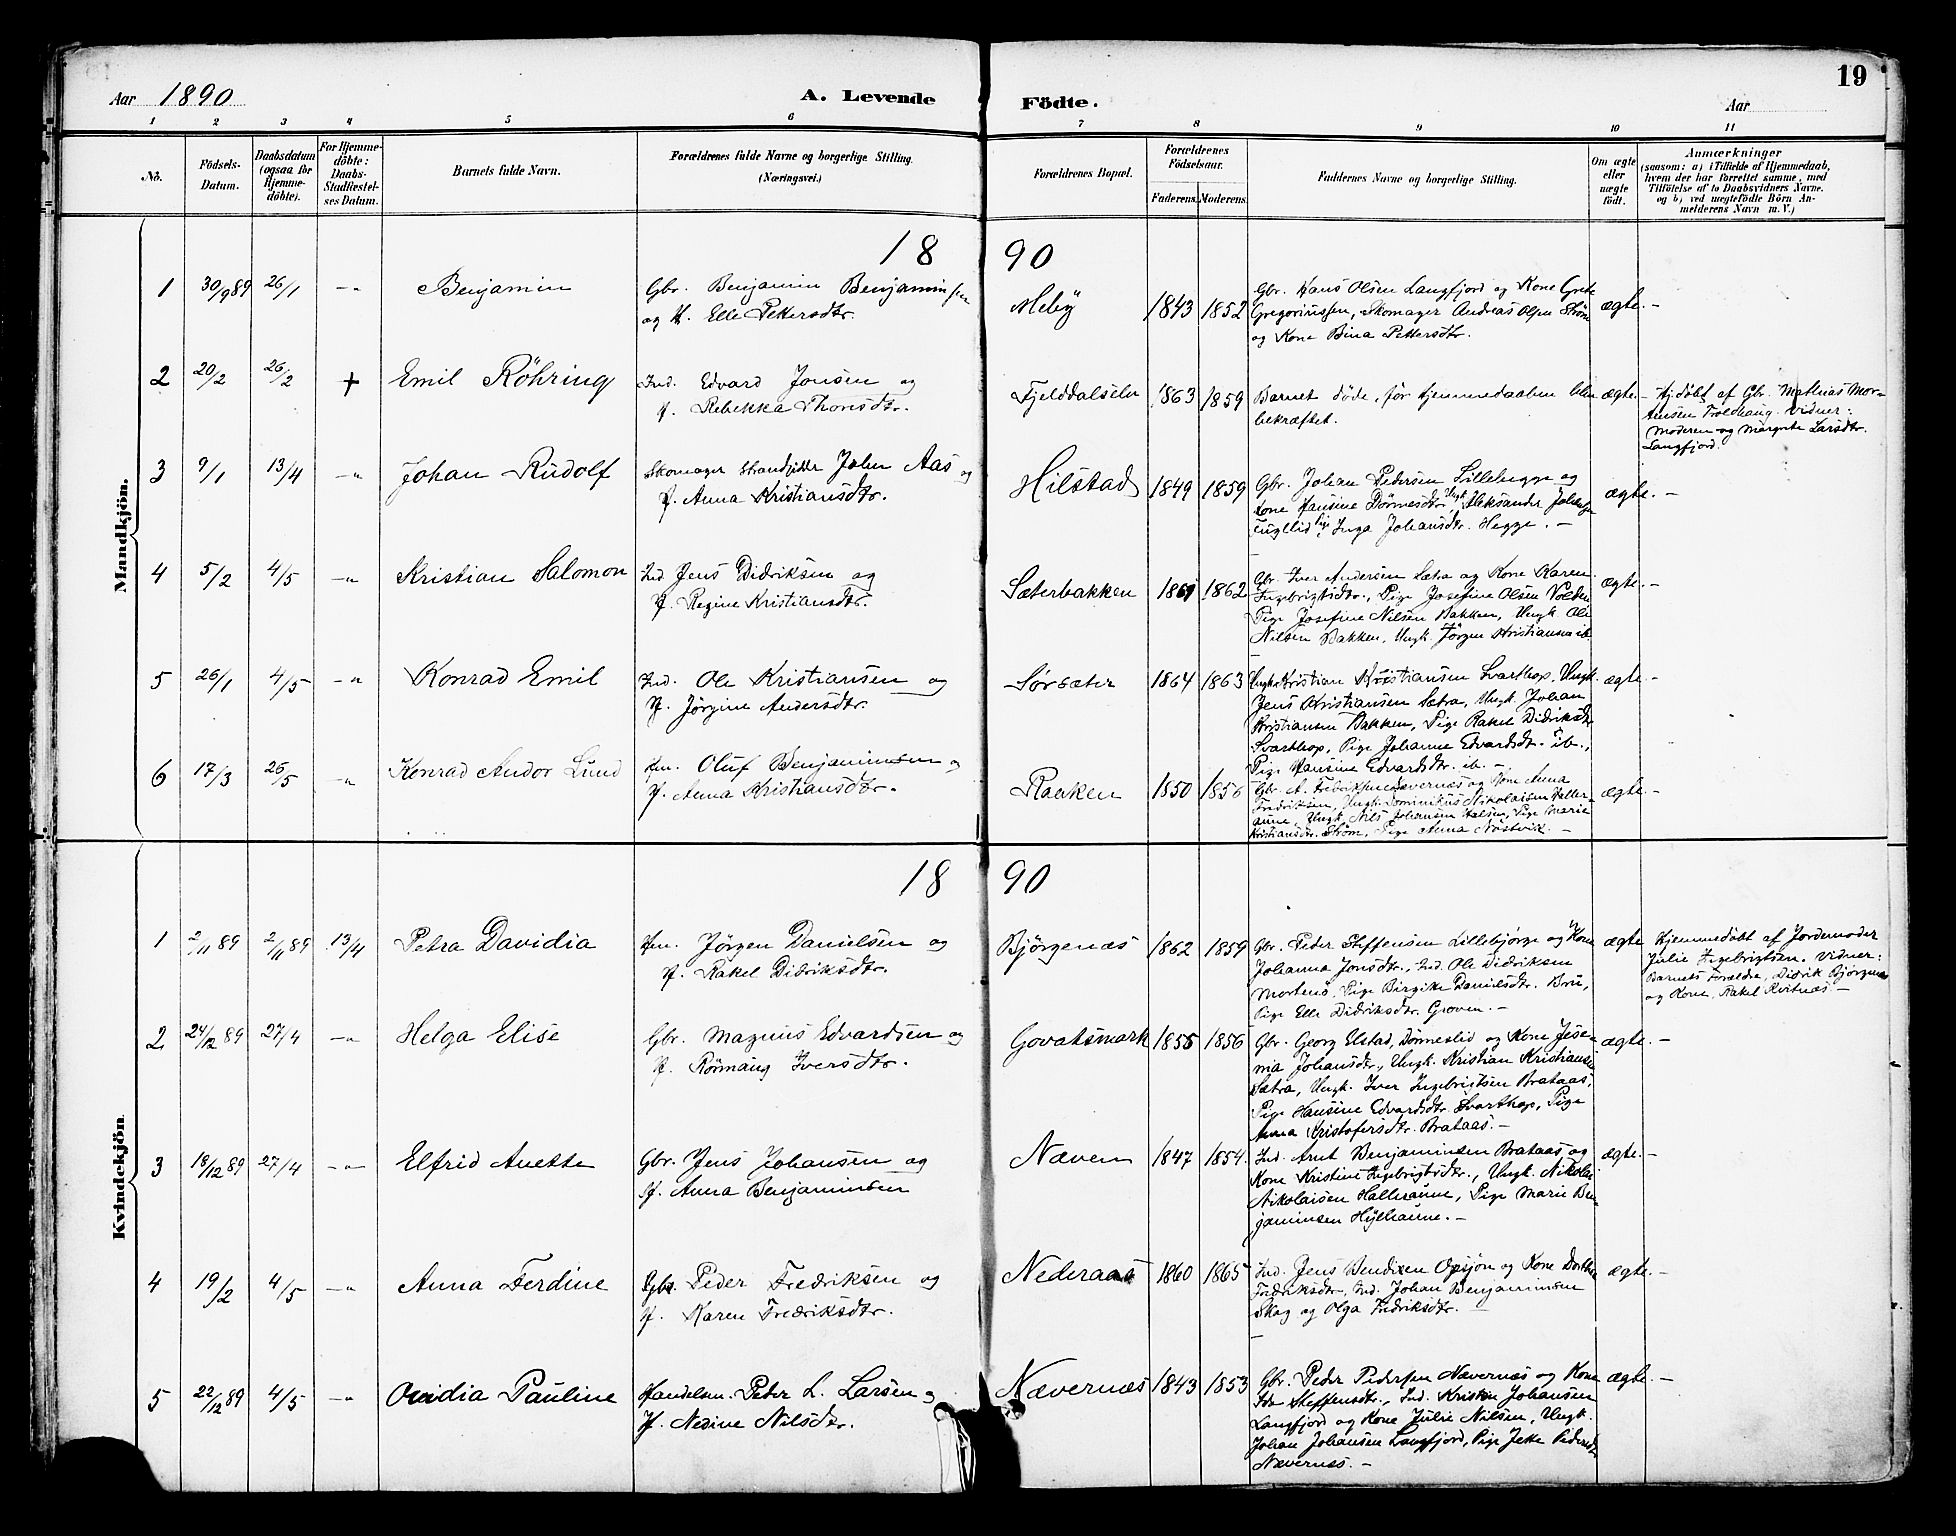 19
Aar 1890 A. Levende Födte. Aar
1 2 3 4 5 6 7 8 9 10 11
No. Födsels-Datum. Daabsdatum (ogsaa for Hjemmedöbte). For Hjemmedöbte: Daabs-Stadfæstelses Datum. Barnets fulde Navn. Forældrenes fulde Navne og borgerlige Stilling. (Næringsvei.) Forældrenes Bopæl. Forældrenes Födselsaar. Faderens. Moderens. Faddernes Navne og borgerlige Stilling. Om ægte eller uægte födt. Anmærkninger (saasom: a) i Tilfælde af Hjemmedaab, hvem der har forrettet samme, med Tilföielse af to Daabsvidners Navne. og b) ved uegtefödte Börn Anmelderens Navn m. V.)
Mandkjön.
18 90
1 30/9 89 26/1 -"- Benjamin Gbr. Benjamin Benjaminsen Meby 1843 1852 Gbr. Hans Olsen Langfjord og Kone Grete ægte. -
og H. Elle Pettersdtr. Gregoriussen, Skomager Andreas Olsen Strøm
og Kone Bina Pettersdtr.
2 20/2 26/2 + Emil Röhring Ind. Edvard Jonsen og Fjelddalselv 1863 1859 Barnet døde, før hjemmedaaben blev ægte. - Hjdöbt af Gbr. Mathias Mor-
H. Rebekka Thorisdtr. bekræftet. tensen Troldhaug. Vidner:
Moderen og Margrete Larsdtr.
Langfjord.
3 9/1 13/4 -"- Johan Rudolf Skomager Strandsidder John Aas og Hilstad 1849 1859 Gbr. Johan Pedersen Lillehegge og ægte. -
H. Anna Kristiansdtr. Kone Hansine Aleksander
Inga Johansdtr. Hegge. -
4 5/2 4/5 -"- Kristian Salomon Ind Jens Didriksen og Sæterbakken 1861 1862 Gbr. Iver Andersen Sætra og Kone Karen ægte. -
H. Regine Kristiansdtr. Ingebrigtsdtr., Pige Josefine Olsen Volden
Pige Josefine Nilsen Bakken, Ungk. Ole
Nilsen Bakken, Ungk. Jörgen Kristiansen ib.
5 26/1 4/5 -"- Konrad Emil Ind. Ole Kristiansen og Sørsæter 1864 1863 Ungk. Kristian Kristiansen Svarthop, Ungk. ægte. -
H. Jörgine Andersdtr. Jens Kristiansen Sætra, Ungk. Johan
Kristiansen Bakken, Pige Rakel Didriksdtr
Svarthop, Pige Johanne Edvardsdtr. ib.,
Pige Hansine Edvardsdtr. ib. -
6 17/3 26/5 -"- Konrad Andor Lund Hm. Oluf Benjaminsen og Raaken 1850 1856 Gbr. A. Fredriksen Nævernæs og Kone Anna ægte. -
H. Anna Kristiansdtr. Fredriksen, Ungk. Dominikus Nikolaisen Haller-
aune, Ungk. Nils Johansen Halsen, Pige Marie
Kristiansdtr. Strøm, Pige Anna Nøstvik. -
Kvindekjön.
18 90
1 2/11 89 2/11 89 13/4 Petra Davidia Hm. Jörgen Danielsen og Bjørgenæs 1862 1859 Gbr. Peder Steffensen Lillebjørge og Kone ægte Hjemmedöbt af Jordemoder
H. Rakel Didriksdtr. Johanna Jonsdtr., Ind. Ole Didriksen Julie Ingebrigtsen. Vidner:
Mortens, Pige Birgitte Danielsdtr. Bru, Barnets Forældre, Didrik Bjørgenæs
Pige Elle Didriksdtr. Groven. - og Kone, Rakel Kvitnæs. -
2 24/12 89 27/4 -"- Helga Elise Gbr. Magnus Edvardsen og Govatsmark 1855 1856 Gbr. Georg Elstad, Dønneslid og Kone Jose- ægte. -
H. Rönnaug Iversdtr. Johansdtr., Ungk. Kristian Kristiansen
Sætra, Ungk. Iver Ingebrigtsen Brataas,
Pige Hansine Edvardsdtr. Svarthop, Pige
Anna Kristofersdtr. Brataas. -
3 18/12 89 27/4 -"- Elfrid Anette Gbr. Jens Johansen og Næven 1847 1854. Ind. Arnt Benjaminsen Brataas og ægte. -
H. Anna Benjaminsen Kone Kristine Ingebrigtsdtr., Ungk. Nikolai
Nikolaisen Halleraune, Pige Marie Ben-
jaminsen Hylhaune. -
4 19/2 4/5 -"- Anna Ferdine Gbr. Peder Fredriksen og Nederaas 1860 1865 Ind. Jens Bendixen Opsjøn og Kone Dorthea ægte. -
H. Karen Fredriksdtr. Fredriksdtr, Ind. Johan Benjaminsen
Skag og Olga Fredriksdtr. -
5 22/12 89 4/5 -"- Ovidia Pauline Handelsm. Peter L. Larsen og Nævernæs 1843 1853 Gbr. Peder Pedersen Nævernæs og Kone ægte. -
H. Nedine Nilsdtr. Ida Steffensdtr., Ind. Kristen Johansen
Langfjord og Kone Julie Nilsen, Ungk.
Johan Johansen Langfjord, Pige Jette Pedersdtr
Nævernæs. -